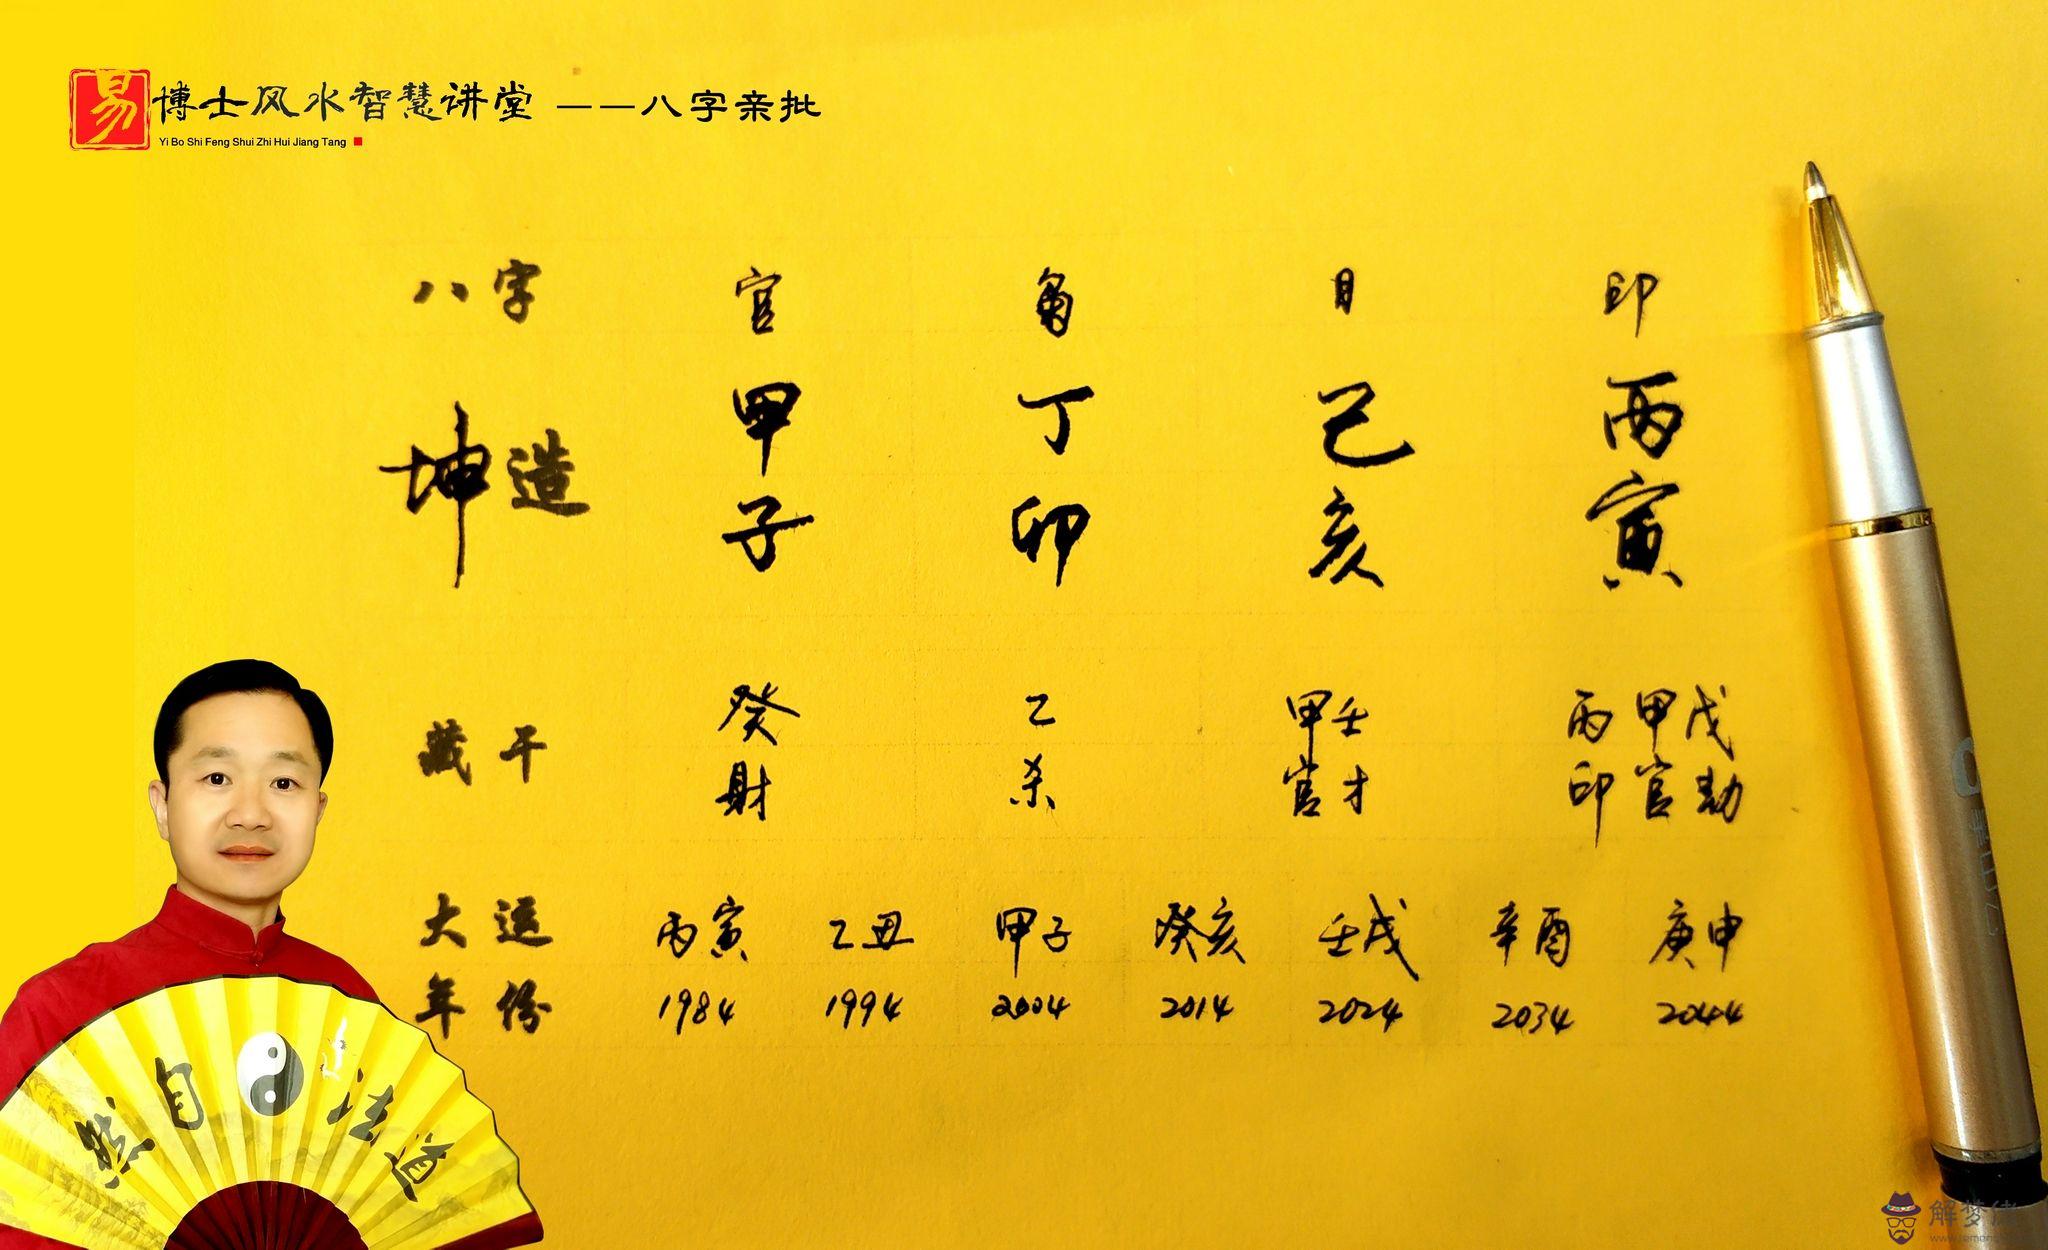 易 博士风水智慧讲堂 ——八字亲批
Yi Bo Shi Feng Shui Zhi Hui Jiang Tang
八字 官 日 印
坤造 甲 丁 己 丙
子 卯 亥 寅
藏干 癸 乙 甲 壬 丙 甲 戊
财 杀 官 才 印 官 劫
大运 丙寅 乙丑 甲子 癸亥 壬戌 辛酉 庚申
年份 1984 1994 2004 2014 2024 2034 2044
道法自然
解梦佬